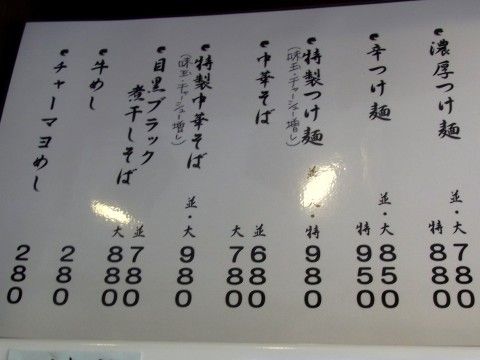 濃厚つけ麺
並・大
780
特
880
辛つけ麺
並・大
850
特
950
特製つけ麺
(味玉・チャーシュー増し)
並・大・特
980
中華そば
並
680
大
780
特製中華そば
(味玉・チャーシュー増し)
並・大
980
目黒ブラック
煮干しそば
並
780
大
880
牛めし
280
チャーマヨめし
280